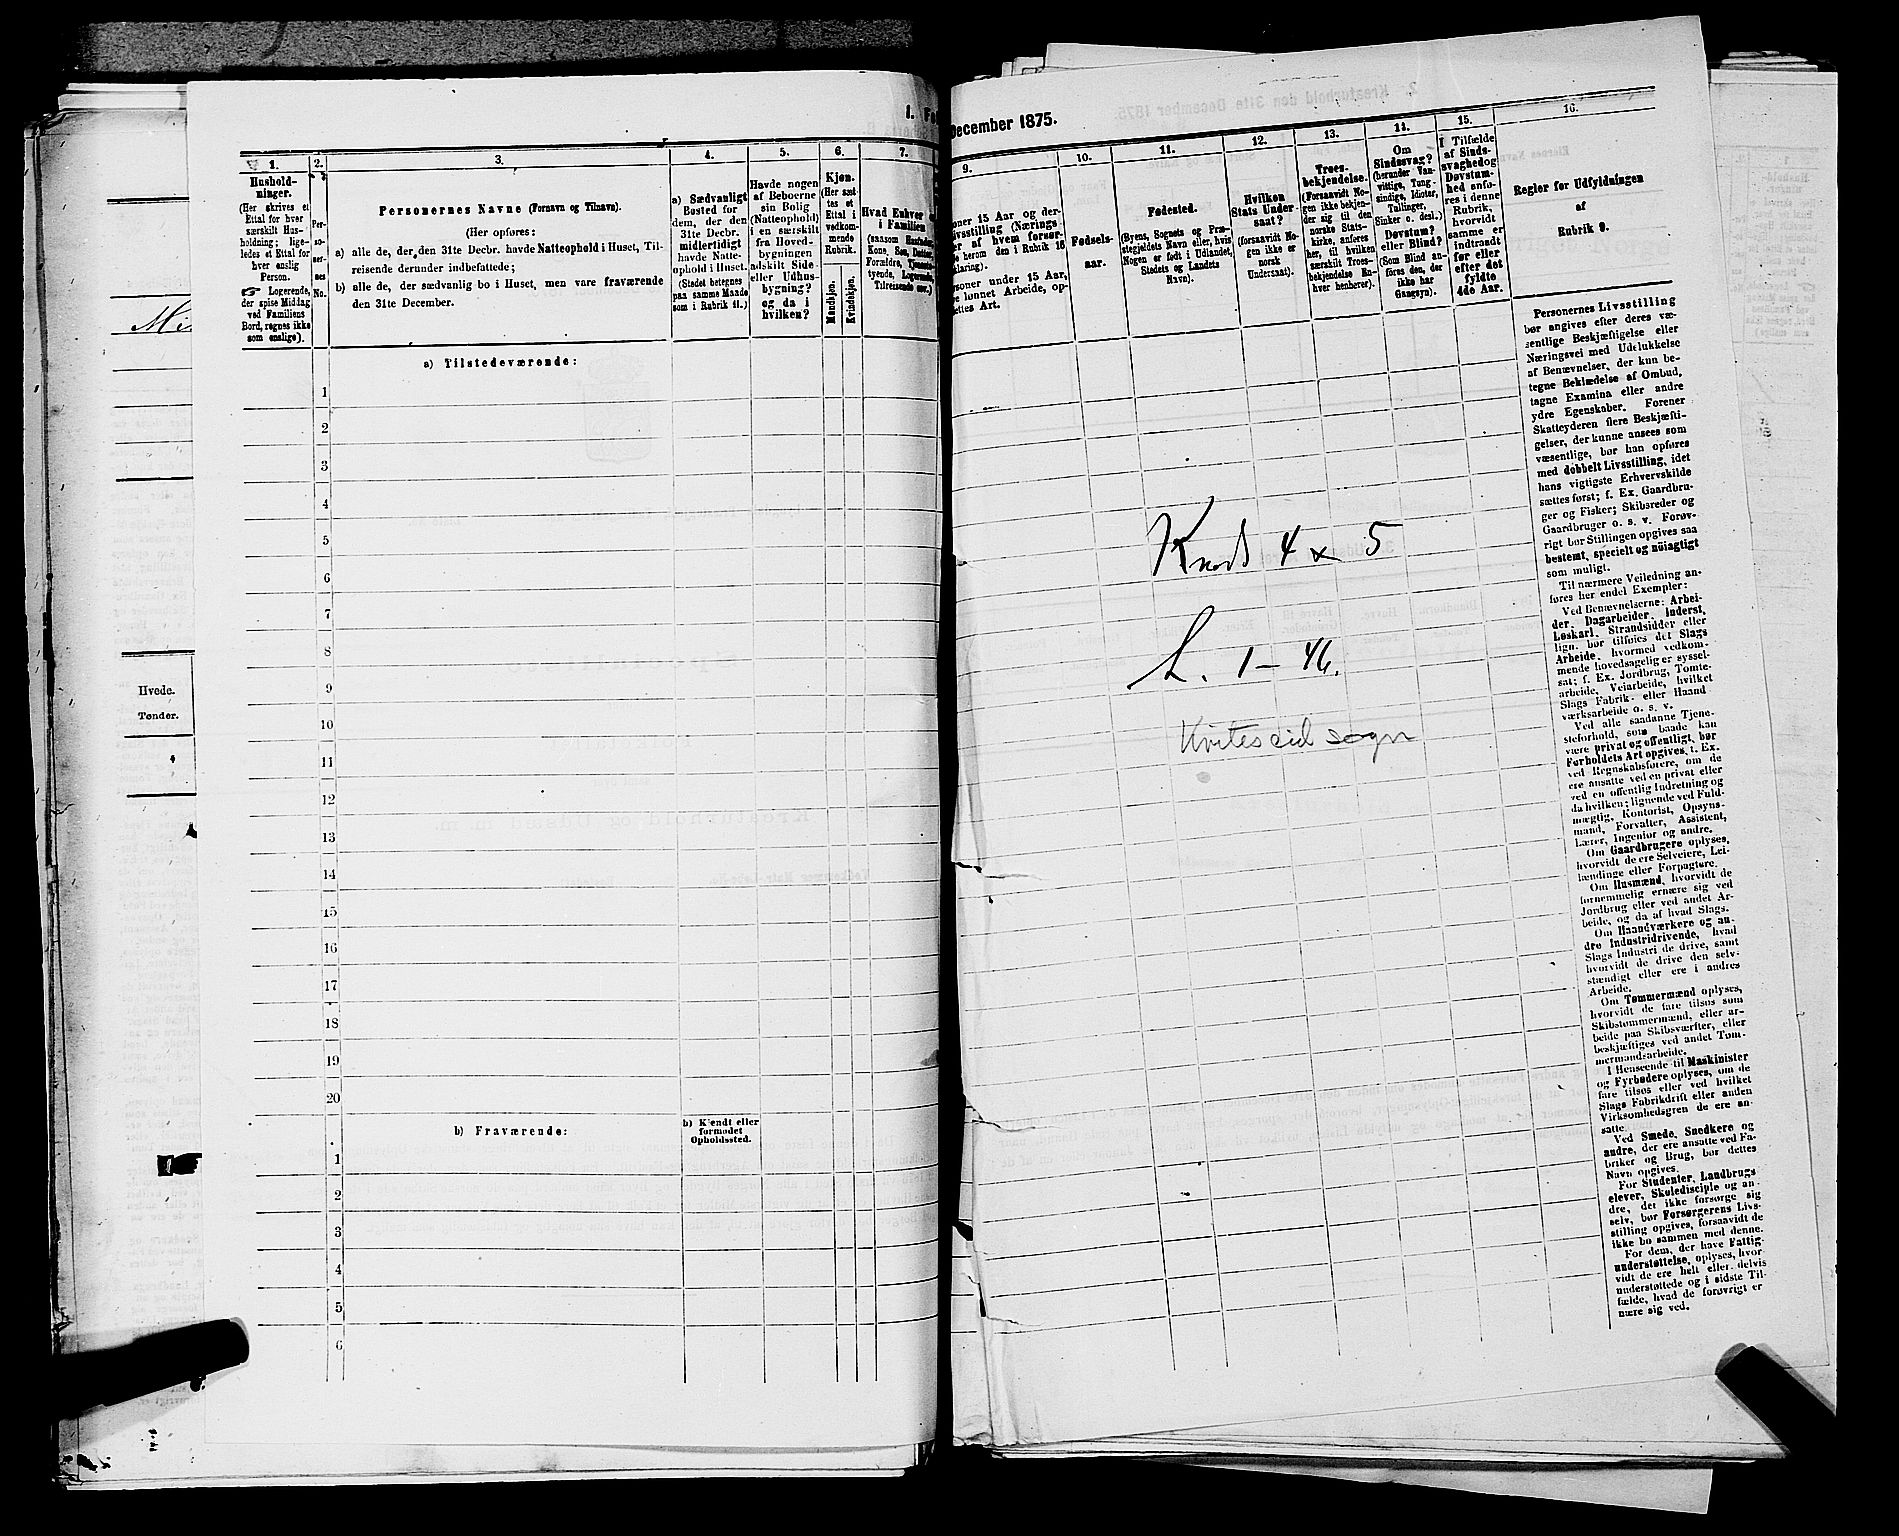 1. Fo
December 1875.
1.
Hushold-
ninger.
(Her skrives et
Ettal for hver
særskilt Hus-
holdning; lige-
ledes et Ettal for
hver enslig
Person.
☞ Logerende,
der spise Middag
ved Familiens
Bord, regnes ikke
som enslige).
2.
Per-
so-
ner-
nes
No.
3.
Personernes Navne (Fornavn og Tilnavn).
(Her opføres:
a) alle de, der den 31te Decbr. havde Natteophold i Huset, Til-
reisende derunder indbefattede;
b) alle de, der sædvanlig bo i Huset, men vare fraværende
den 31te December.
4.
a) Sædvanligt
Bosted for
dem, der den
31te Decbr.
midlertidigt
havde Natte-
ophold i Huset.
(Stedet betegnes
paa samme Maade
som i Rubrik 11.)
5.
Havde nogen
af Beboerne
sin Bolig
(Natteophold)
i en særskilt
fra Hoved-
bygningen
adskilt Side-
eller Udhus-
bygning?
og da i
hvilken?
6.
Kjøn.
(Her sæt-
tes et
Ettal i
vedkom-
mende
Rubrik.
Mandkjøn.
Kvindekjøn.
7.
Hvad Enhver
i Familien
(saasom Husfader,
Kone, Søn, Datter,
Forældre,
tyende, Logerende,
Tilreisende osv.)
9.
oner 15 Aar og der-
ivsstilling (Nærings
er af hvem forsør-
e herom den i Rubrik 16
klaring).
rsoner under 15 Aar,
re lønnet Arbeide, op-
ettes Art.
10.
Fødsels-
aar.
11.
Fødested.
(Byens, Sognets og Præ-
stegjeldets Navn eller, hvis
Nogen er født i Udlandet,
Stedets og Landets
Navn).
12.
Hvilken
Stats Under-
saat?
(forsaavidt No-
gen ikke er
norsk
Undersaat).
13.
Troes-
bekjendelse.
(Forsaavidt No-
gen ikke bekjen-
der sig til den
norske Stats-
kirke, anføres
her, til hvilken
særskilt Troes-
bekjendelse En-
hver henhører).
14.
Om
Sindssvag?
(herunder Van-
vittige, Tung-
sindige, Idioter,
Tullinger,
Sinker o. desl.)
Døvstum?
eller Blind?
(Som Blind an-
føres den, der
ikke har
Gangsyn).
15.
I Tilfælde
af Sinds-
svaghed og
Døvstum-
hed anfø-
res i denne
Rubrik,
hvorvidt
samme er
indtraadt
før eller
efter det
fyldte
4de Aar.
16.
Regler for Udfyldningen
af
Rubrik 9.
a) Tilstedeværende:
1
2
3
4
5
6
7
8
9
10
11
12
13
14
15
16
17
18
19
20
b) Fraværende:
b) Kjendt eller
formodet
Opholdssted.
1
2
3
4
5
6
4 x 5
L. 1 – 46.
Kviteseid sogn
Personernes Livsstilling
bør angives efter deres væ-
sentlige Beskjæftigelse eller
Næringsvei med Udelukkelse
af Benævnelser, der kun be-
tegne Beklædelse af Ombud,
tagne Examina eller andre
ydre Egenskaber. Forener
Skatteyderen flere Beskjæfti-
gelser, der kunne ansees som
væsentlige, bør han opføres
med dobbelt Livsstilling, idet
hans vigtigste Erhvervskilde
sættes først; f. Ex. Gaardbru-
ger og Fisker; Skibsreder og
Gaardbruger o. s. v. Forøv-
rigt bør Stillingen opgives saa
bestemt, specielt og nøiagtigt
som muligt.
Til nærmere Veiledning an-
føres her endel Exempler:
Ved Benævnelserne: Arbei-
der, Dagarbeider, Inderst,
Løskarl, Strandsidder eller
lign. bør tilføies det Slags
Arbeide, hvormed vedkom-
mende hovedsagelig er syssel-
sat; f. Ex. Jordbrug, Tomte-
arbeide, Veiarbeide, hvilket
Slags Fabrik- eller Haand-
værksarbeide o. s. v.
Ved alle saadanne Tjene-
steforhold, som baade kan
være privat og offentligt, bør
Forholdets Art opgives, f. Ex.
ved Regnskabsførere, om de
ere ansatte ved en privat eller
ved en offentlig Indretning og
da hvilken; lignende ved Fuld-
mægtig, Kontorist, Opsyns-
mand, Forvalter, Assistent,
Lærer, Ingeniør og andre.
Om Gaardbrugere oplyses,
hvorvidt de ere Selveiere, Lei-
lændinge eller Forpagtere.
Om Husmænd, hvorvidt de
fornemmelig ernære sig ved
Jordbrug eller ved andet Ar-
beide, og da af hvad Slags.
Om Haandværkere og an-
dre Industridrivende, hvad
Slags Industri de drive, samt
hvorvidt de drive den selv-
stændigt eller ere i andres
Arbeide.
Om Tømmermænd oplyses,
hvorvidt de fare tilsøs som
Skibstømmermænd, eller ar-
beide paa Skibsværfter, eller
beskjæftiges ved andet Tøm-
mermandsarbeide.
I Henseende til Maskinister
og Fyrbødere oplyses, om de
fare tilsøs eller ved hvilket
Slags Fabrikdrift eller anden
Virksomhedsgren de ere an-
satte.
Ved Smede, Snedkere og
andre, der ere ansatte ved Fa-
briker og Brug, bør dettes
Navn opgives.
For Studenter, Landbrugs-
elever, Skoledisciple og an-
dre, der ikke forsørge sig
selv, bør Forsørgerens Livs-
stilling opgives, forsaavidt de
ikke bo sammen med denne.
For dem, der have Fattig-
understøttelse, oplyses, hvor-
vidt de ere helt eller delvis
understøttede og i sidste Til-
fælde, hvad de forøvrigt er
nære sig ved.
Hvede.
Tønder.